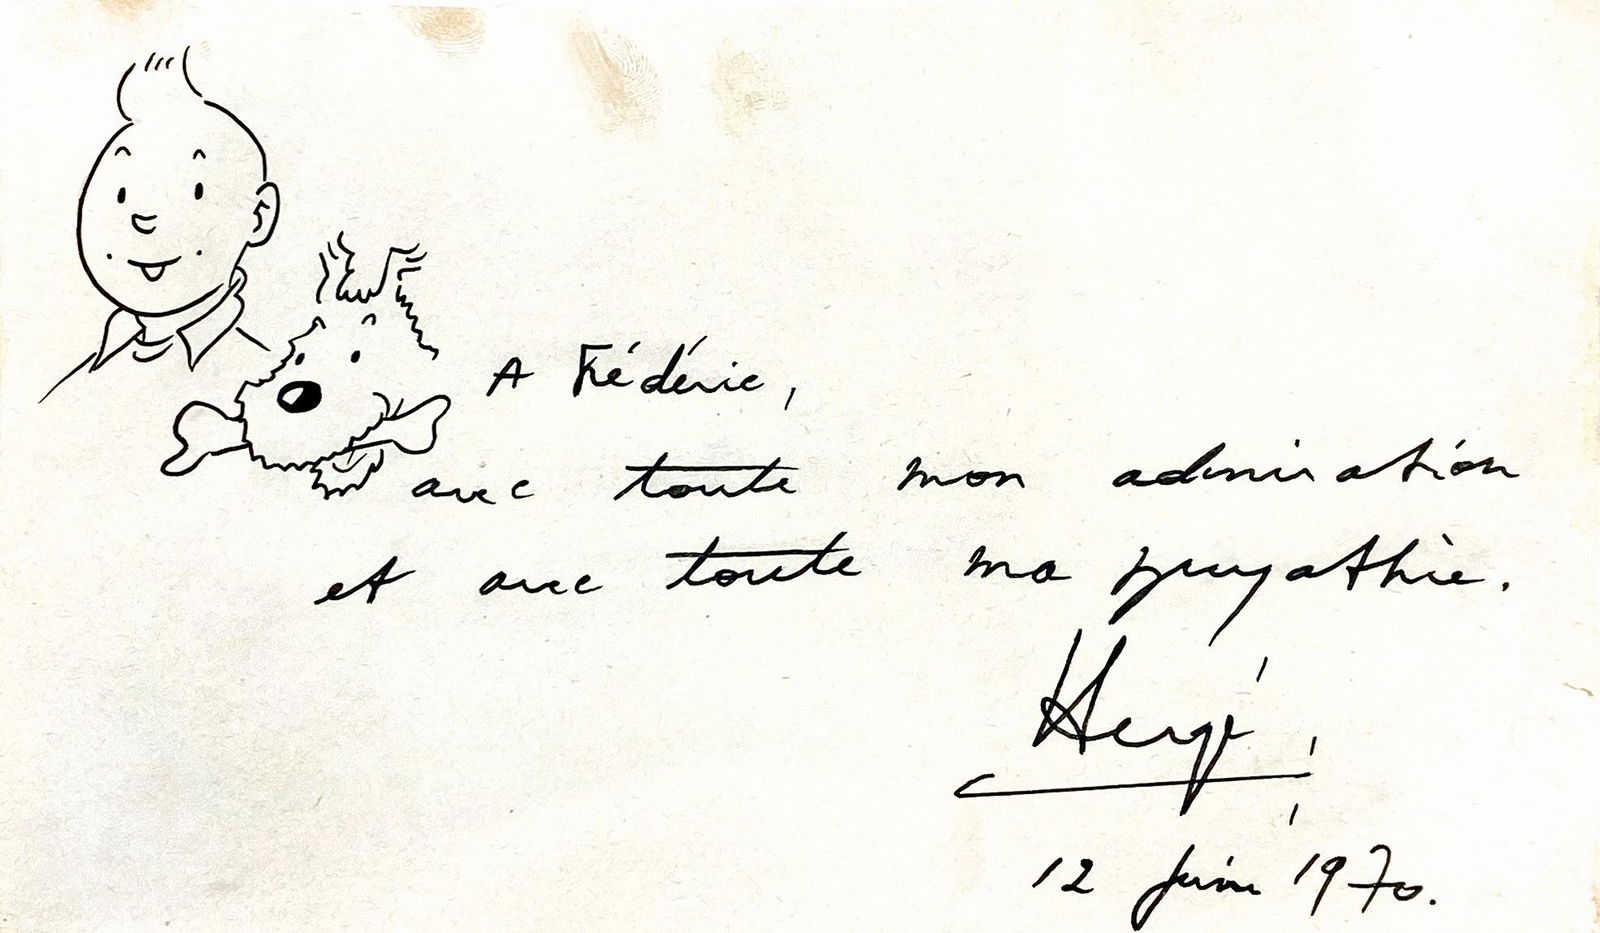 A Frédéric,
avec toute mon admiration
et avec toute ma sympathie.
Hergé
12 juin 1970.